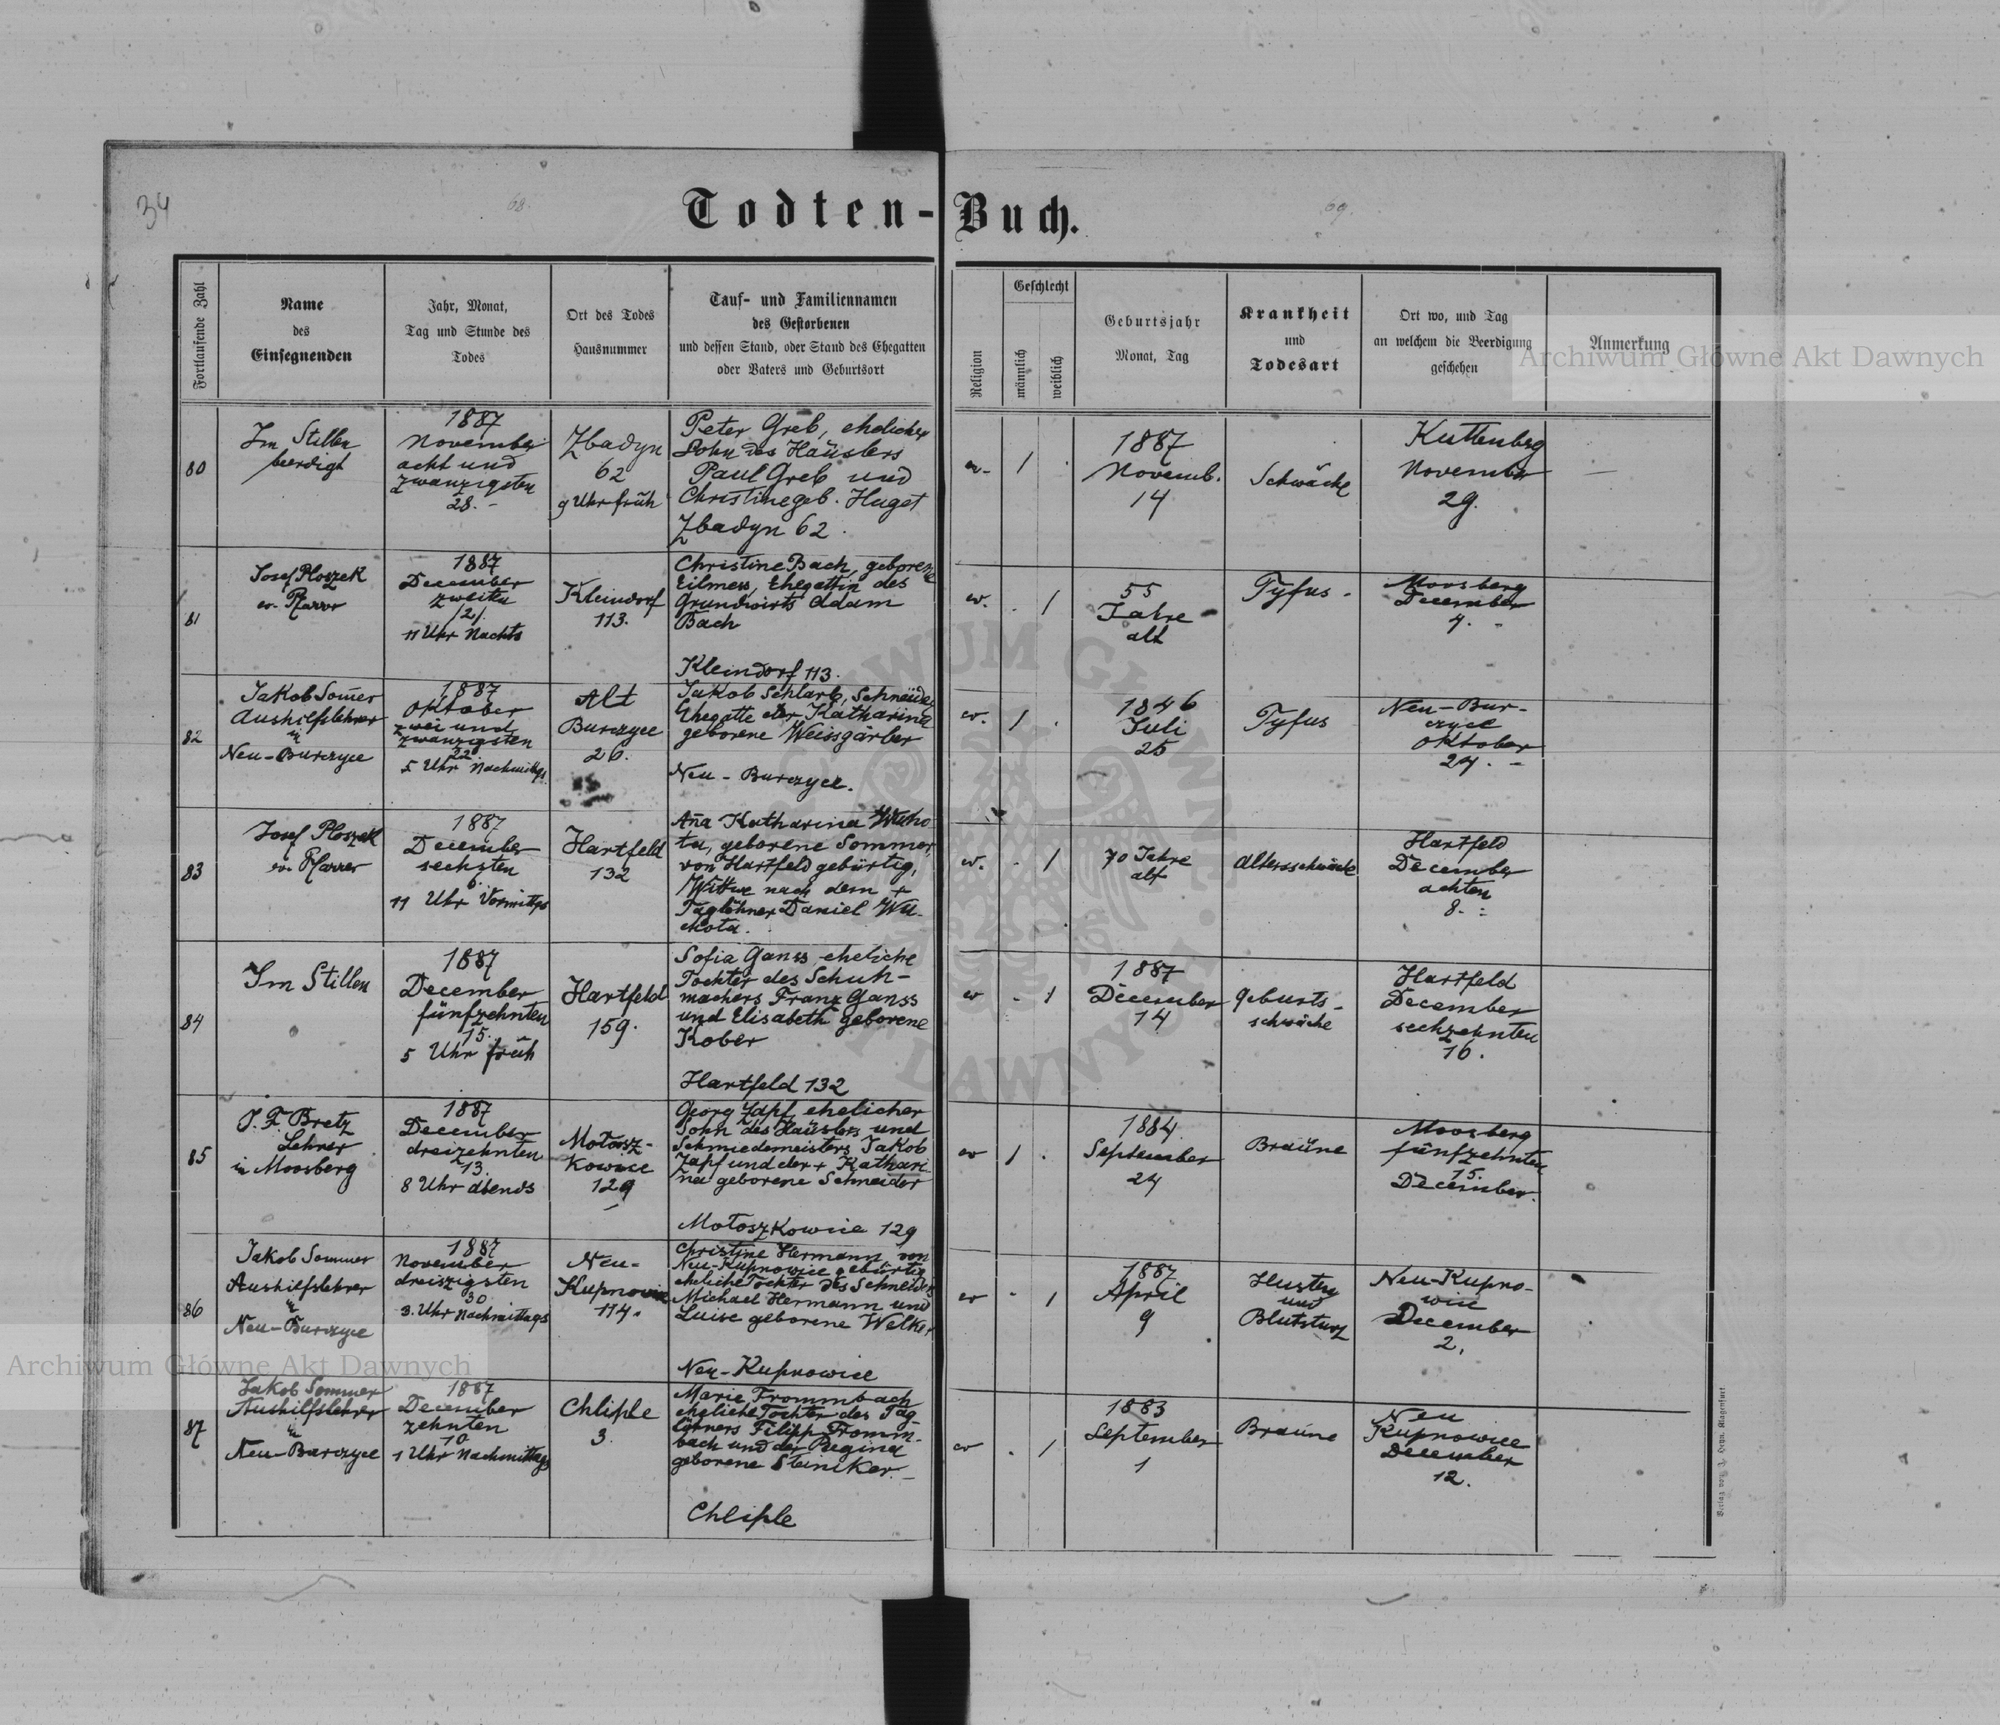 34
68.
69.
Todten-Buch.
Fortlaufende Zahl
Name
des
Einsegnenden
Jahr, Monat,
Tag und Stunde des
Todes
Ort des Todes
Hausnummer
Tauf- und Familiennamen
des Gestorbenen
und dessen Stand, oder Stand des Ehegatten
oder Vaters und Geburtsort
Religion
Geschlecht
männlich
weiblich
Geburtsjahr
Monat, Tag
Krankheit
und
Todesart
Ort wo, und Tag
an welchem die Beerdigung
geschehen
Anmerkung
80
Im Stillen
beerdigt
1887
November
acht und
zwanzigsten
28. -
Zbadyn
62
9 Uhr früh
Peter Greb, ehelicher
Sohn des Häuslers
Paul Greb und
Christine geb. Huget
Zbadyn 62.
1
1887
Novemb.
14
Schwäche
Kuttenberg
November
29.
81
Josef Ploszek
ev. Pfarrer
1887
December
zweiten
/2/.
11 Uhr Nachts
Kleindorf
113.
Christine Bach, geborene
Eilmess, Ehegattin des
Grundwirts Adam
Bach
Kleindorf 113.
ev. . 1
55
Jahre
alt
Tyfus -
Moosberg
December
4. -
82
Jakob Som̅er
Aushilfslehrer
in
Neu-Burczyce
1887
Oktober
zwei und
zwanzigsten
22.
5 Uhr Nachmittgs
Alt
Burczyce
26.
Jakob Schlarb, Schneider
Ehegatte der Katharina
geborene Weissgärber
Neu-Burczyce.
ev. 1 .
1846
Juli
25
Tyfus
Neu-Bur-
czyce
Oktober
24. -
83
Josef Ploszek
ev. Pfarrer
1887
December
sechsten
6.
11 Uhr Vormittgs
Hartfeld
132
An̅a Katharina Wucho-
ta, geborene Sommer,
von Hartfeld gebürtig,
Wittwe nach dem +
Taglöhner Daniel Wu-
chota.
ev. . 1
70 Jahre
alt
Altersschwäche
Hartfeld
December
achten
8. -
84
Im Stillen
1887
December
fünfzehnten
15.
5 Uhr früh
Hartfeld
159.
Sofia Ganss eheliche
Tochter des Schuh-
machers Franz Ganss
und Elisabeth geborene
Kober
Hartfeld 132
ev . 1
1887
December
14
Geburts-
schwäche
Hartfeld
December
sechzehnten
16.
85
J. F. Bretz
Lehrer
in Moosberg
1887
December
dreizehnten
13.
8 Uhr Abends
Motosz-
kowice
129
Georg Zapf, ehelicher
Sohn des Häuslers und
Schmiedemeisters Jakob
Zapf und der + Kathari-
na geborene Schneider
Motoszkowice 129
ev 1 .
1884
September
24
Braüne
Moosberg
fünfzehnten
15.
December.
86
Jakob Sommer
Aushilfslehrer
in
Neu-Burczyce
1887
November
dreiszigsten
30
3. Uhr Nachmittags
Neu-
Kupnowice
114.
Christine Hermann von
Neu-Kupnowice gebürtig
eheliche Tochter des Schneiders
Michael Hermann und
Luise geborene Welker
Neu-Kupnowice
ev - 1
1887
April
9
Husten
und
Blutsturz
Neu-Kupno-
wice
December
2.
87
Jakob Sommer
Aushilfslehrer
in
Neu-Burczyce
1887
December
zehnten
10.
1 Uhr Nachmittags
Chliple
3.
Marie Frommbach
eheliche Tochter des Tag-
löhners Filipp Fromm-
bach und der Regina
geborene Steniker. -
Chliple
ev . 1
1883
September
1
Braüne
Neu
Kupnowice
December
12.
Verlag von J. Heyn, Klagenfurt.
Archiwum Główne Akt Dawnych
Archiwum Główne Akt Dawnych